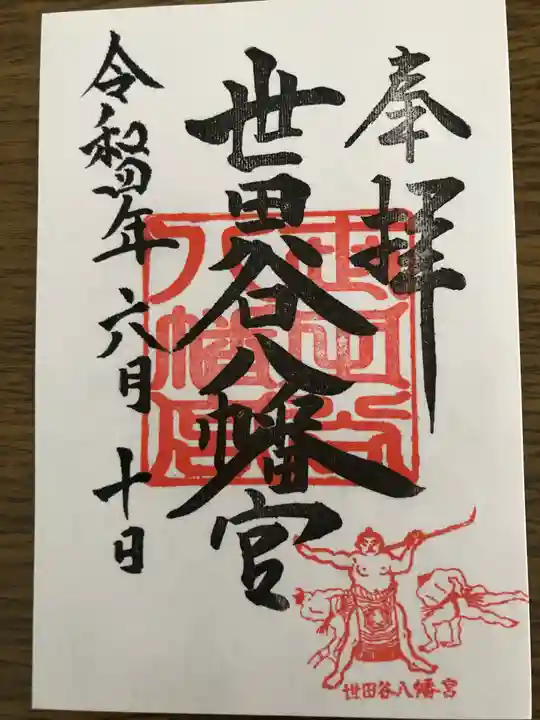 奉拝
世田谷八幡宮
令和四年六月十日
世田谷
八幡宮
世田谷八幡宮